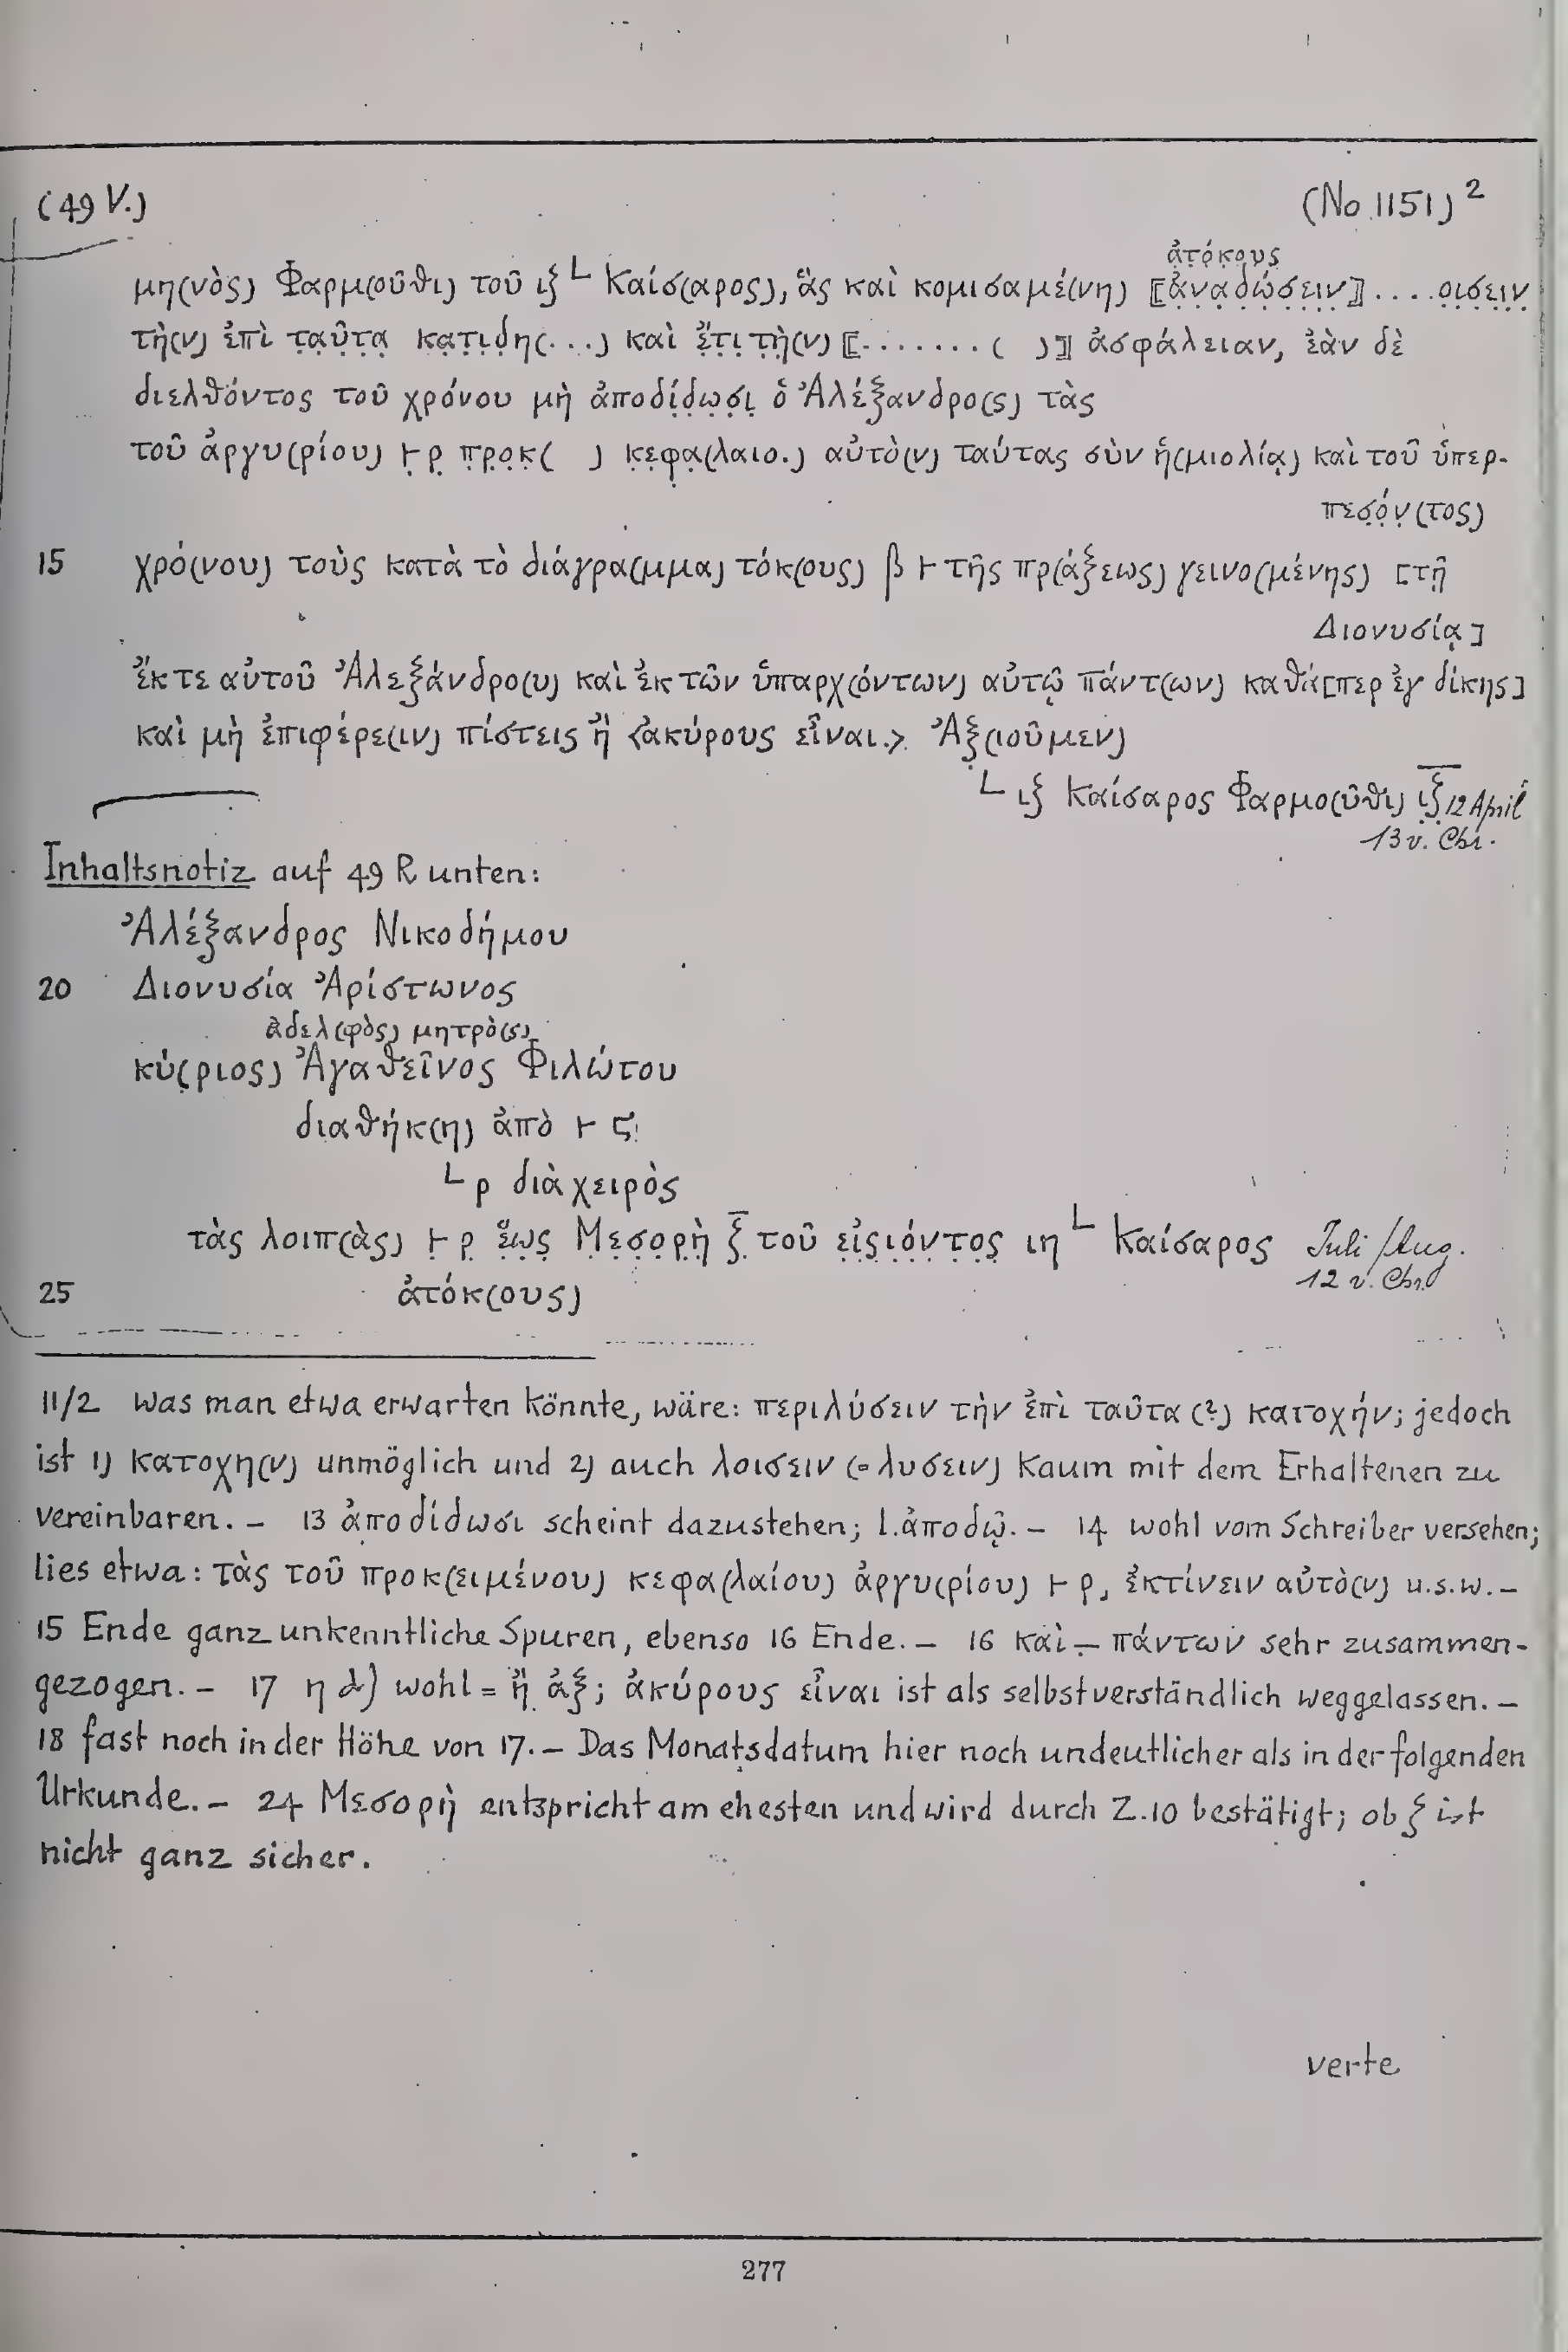 (49 V.) (No 1151) 2
ἀτόκους
μη(νὸς) Φαρμ(οῦθι) τοῦ ιζ L Καίσ(αρος), ἃς καὶ κομισαμέ(νη) ⟦ἀναδώσειν⟧ ....οισειν
τὴ(ν) ἐπὶ ταῦτα κατιδη(...) καὶ ἔτι τὴ(ν) ⟦.......( )⟧ ἀσφάλειαν, ἐὰν δὲ
διελθόντος τοῦ χρόνου μὴ ἀποδίδωσι ὁ Ἀλέξανδρο(ς) τὰς
τοῦ ἀργυ(ρίου) ⊢ ρ προκ( ) κεφα(λαιο.) αὐτὸ(ν) ταύτας σὺν ἡ(μιολίᾳ) καὶ τοῦ ὑπερ-
πεσόν(τος)
15 χρό(νου) τοὺς κατὰ τὸ διάγρα(μμα) τόκ(ους) β ⊢ τῆς πρ(άξεως) γεινο(μένης) [τῇ
Διονυσίᾳ]
ἔκ τε αὐτοῦ Ἀλεξάνδρο(υ) καὶ ἐκ τῶν ὑπαρχ(όντων) αὐτῷ πάντ(ων) καθά[περ ἐγ δίκης]
καὶ μὴ ἐπιφέρε(ιν) πίστεις ἢ <ἀκύρους εἶναι.> Ἀξ(ιοῦμεν)
L ιζ Καίσαρος Φαρμο(ῦθι) ιζ 12 April
13 v. Chr.
Inhaltsnotiz auf 49 R unten:
Ἀλέξανδρος Νικοδήμου
20 Διονυσία Ἀρίστωνος
ἀδελ(φὸς) μητρὸ(ς)
κύ(ριος) Ἀγαθεῖνος Φιλώτου
διαθήκ(η) ἀπὸ ⊢ ς
L ρ διὰ χειρὸς
τὰς λοιπ(ὰς) ⊢ ρ ἕως Μεσορὴ ξ τοῦ εἰσιόντος ιη L Καίσαρος Juli/Aug.
12 v. Chr.
25 ἀτόκ(ους)
11/2 Was man etwa erwarten könnte, wäre: περιλύσειν τὴν ἐπὶ ταῦτα (?) κατοχήν; jedoch
ist 1) κατοχη(ν) unmöglich und 2) auch λοισειν (= λυσειν) kaum mit dem Erhaltenen zu
vereinbaren. – 13 ἀποδίδωσι scheint dazustehen; l. ἀποδῷ. – 14 wohl vom Schreiber versehen;
lies etwa: τὰς τοῦ προκ(ειμένου) κεφα(λαίου) ἀργυ(ρίου) ⊢ ρ, ἐκτίνειν αὐτὸ(ν) u.s.w. –
15 Ende ganz unkenntliche Spuren, ebenso 16 Ende. – 16 καὶ – πάντων sehr zusammen-
gezogen. – 17 η wohl = ἢ ἀξ; ἀκύρους εἶναι ist als selbstverständlich weggelassen. –
18 fast noch in der Höhe von 17. – Das Monatsdatum hier noch undeutlicher als in der folgenden
Urkunde. – 24 Μεσορὴ entspricht am ehesten und wird durch Z. 10 bestätigt; ob ξ ist
nicht ganz sicher.
verte
277